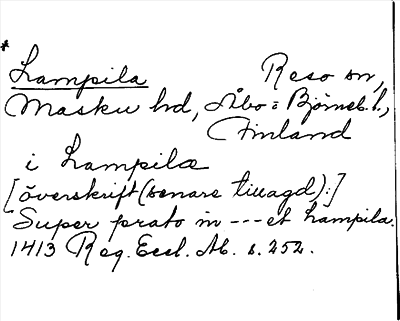 * Lampila Reso sn,
Masku hd, Åbo = Björneb. l.,
Finland
i Lampila
[överskrift (senare tillagd):]
Super prato in --- et Lampila.
1413 Reg. Eccl. Ab. s. 252.